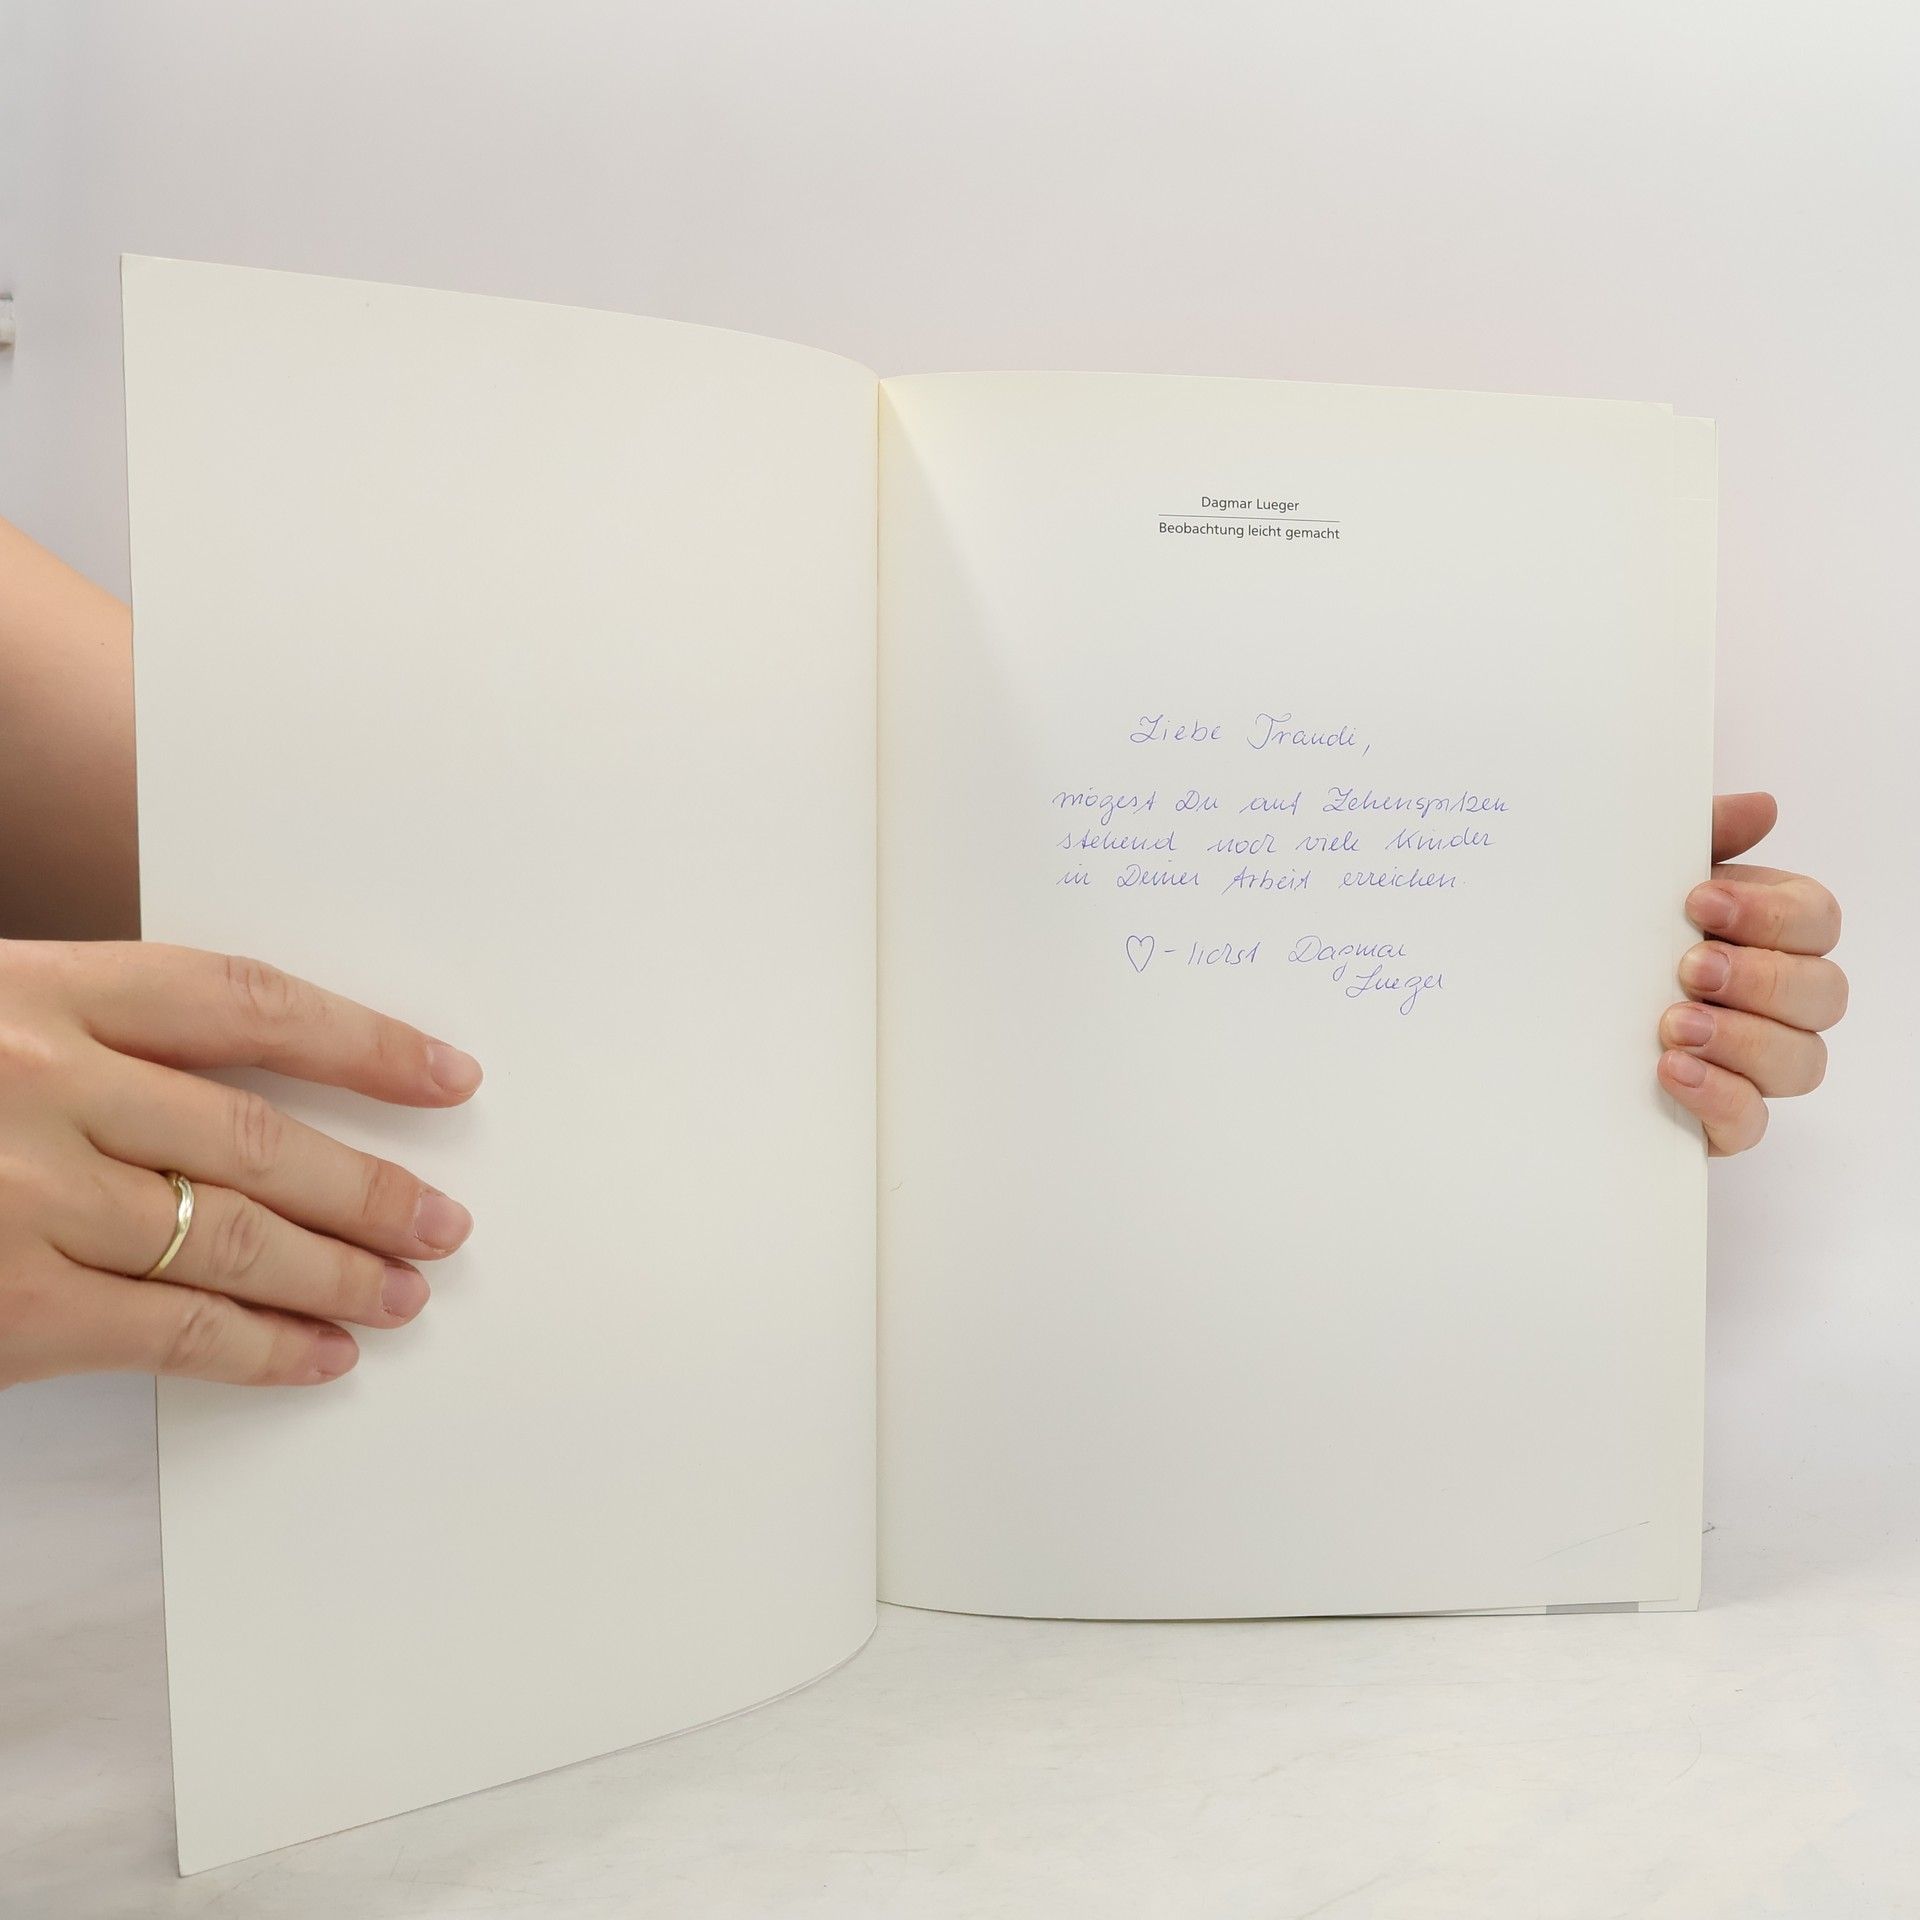 Dagmar Lueger
Beobachtung leicht gemacht
Liebe Traudi,
mögest Du auf Zehenspitzen
stehend noch viele Kinder
in Deiner Arbeit erreichen.
♡-lichst Dagmar
Lueger